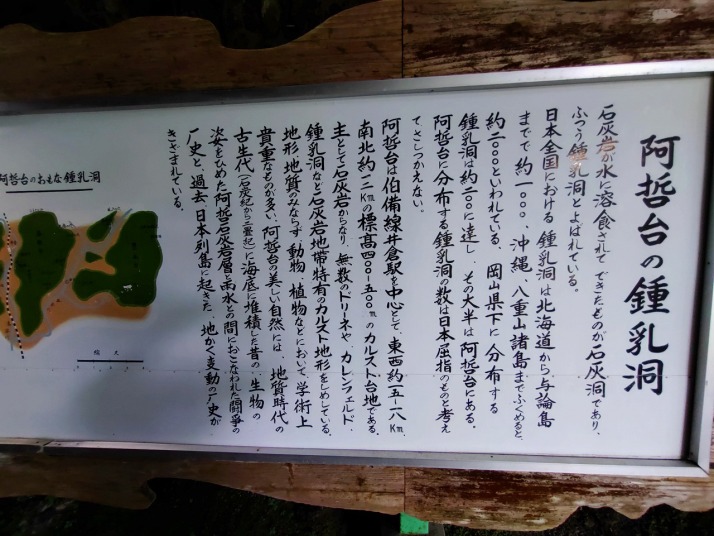 阿哲台の鍾乳洞
石灰岩が水に溶食されて できたものが石灰洞であり、
ふつう鍾乳洞とよばれている。
日本全国における 鍾乳洞は北海道から与論島
までで 約一〇〇〇、沖縄、八重山諸島までふくめると、
約二〇〇〇といわれている。岡山県下に分布する
鍾乳洞は約二〇〇に達し、その大半は阿哲台にある。
阿哲台に分布する鍾乳洞の数は日本屈指のものと考え
てさしつかえない。
阿哲台は伯備線井倉駅を中心として、東西約一五〜一八Km、
南北約一二Kmの標高四〇〇〜五〇〇mのカルスト台地である。
主として石灰岩からなり、無数のドリーネや、カレンフェルド、
鍾乳洞など石灰岩地帯特有のカルスト地形をしめしている。
地形、地質のみならず、動物、植物などにおいて、学術上
貴重なものが多い。阿哲台の美しい自然には、地質時代の
古生代(石炭紀から二畳紀)に海底に堆積した昔の、生物の
姿をひめた阿哲石灰岩層と雨水との間におこなわれた闘争の
厂史と、過去、日本列島に起きた、地かく変動の厂史が
きざまれている。
阿哲台のおもな鍾乳洞